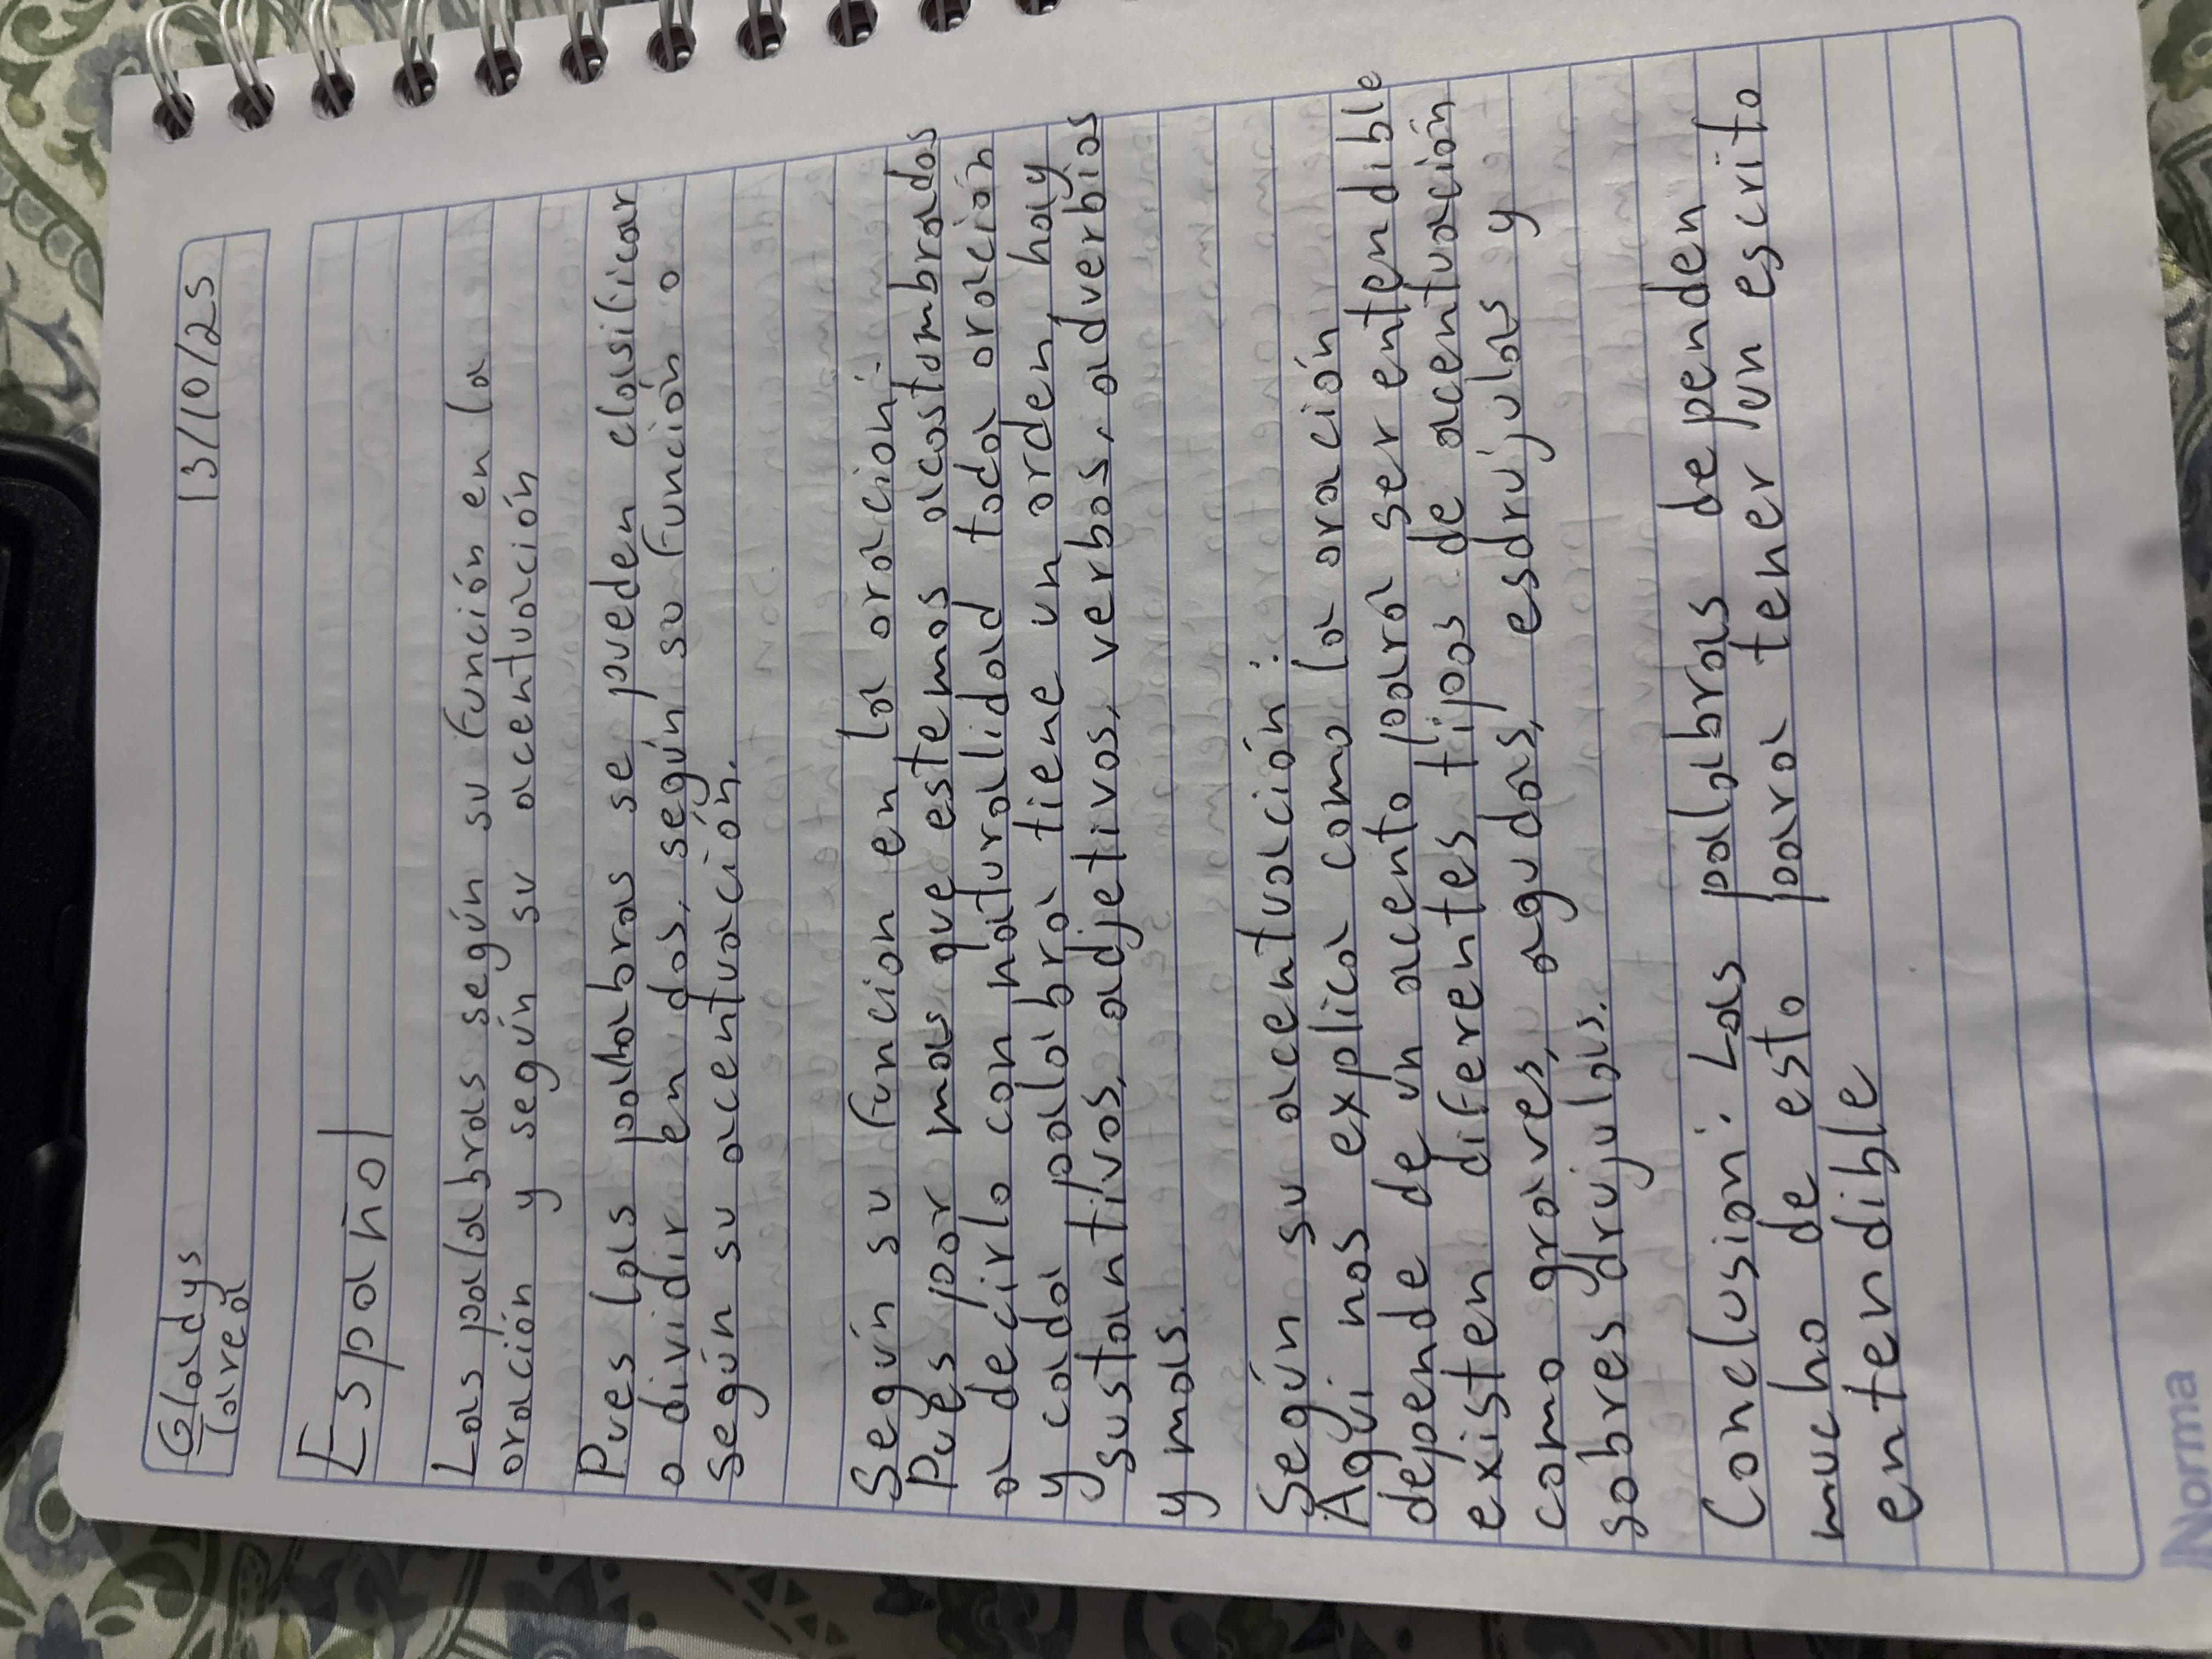 Gladys 13/10/25
Tarea
Español
Las palabras según su función en la
oración y según su acentuación
Pues las palabras se pueden clasificar
o dividir en dos, según su función o
según su acentuación.
Según su funcion en la oracion:
Pues por mas que estemos acostombrados
a decirlo con naturalidad toda oración
y cada palabra tiene un orden, hay
sustantivos, adjetivos, verbos, adverbios
y mas.
Según su acentuación:
Aqui nos explica como la oración
depende de un acento para ser entendible
existen diferentes tipos de acentuación
como graves, agudas, esdrujulas y
sobresdrujulas.
Conclusion: Las palabras dependen
mucho de esto para tener un escrito
entendible
Norma